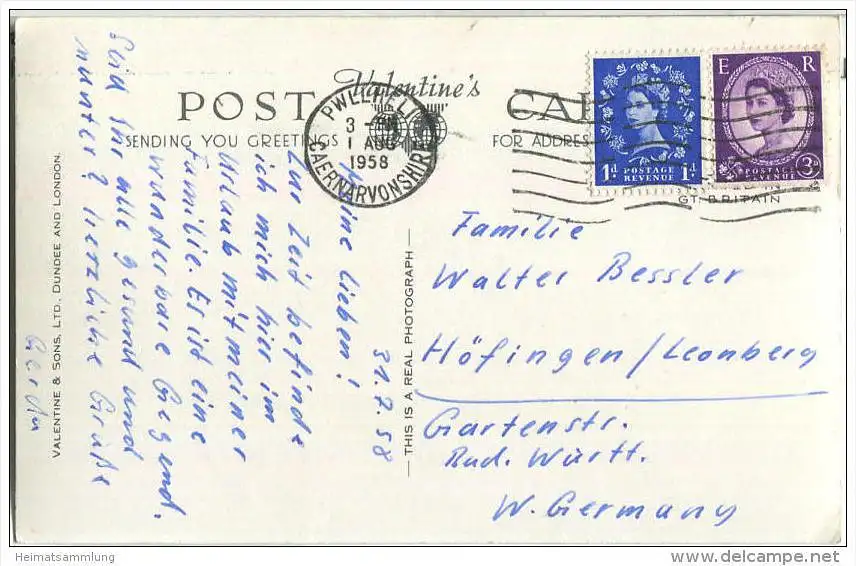 Valentine's
POST CA
SENDING YOU GREETINGS
FOR ADDRESS
PWLLHELI
3 - PM
1 AUG
1958
CAERNARVONSHIRE
1d POSTAGE REVENUE 1d
E R
POSTAGE REVENUE 3d
GT. BRITAIN
31.7.58
Meine lieben!
Zur Zeit befinde
ich mich hier im
Urlaub mit meiner
Familie. Es ist eine
wunderbare Gegend.
Seid Ihr alle gesund und
munter? herzliche Grüße
THIS IS A REAL PHOTOGRAPH
VALENTINE & SONS, LTD., DUNDEE AND LONDON.
Familie
Walter Bessler
Höfingen/Leonberg
Gartenstr.
Bad. Württ.
W. Germany
Heimatsammlung
www.delcampe.net